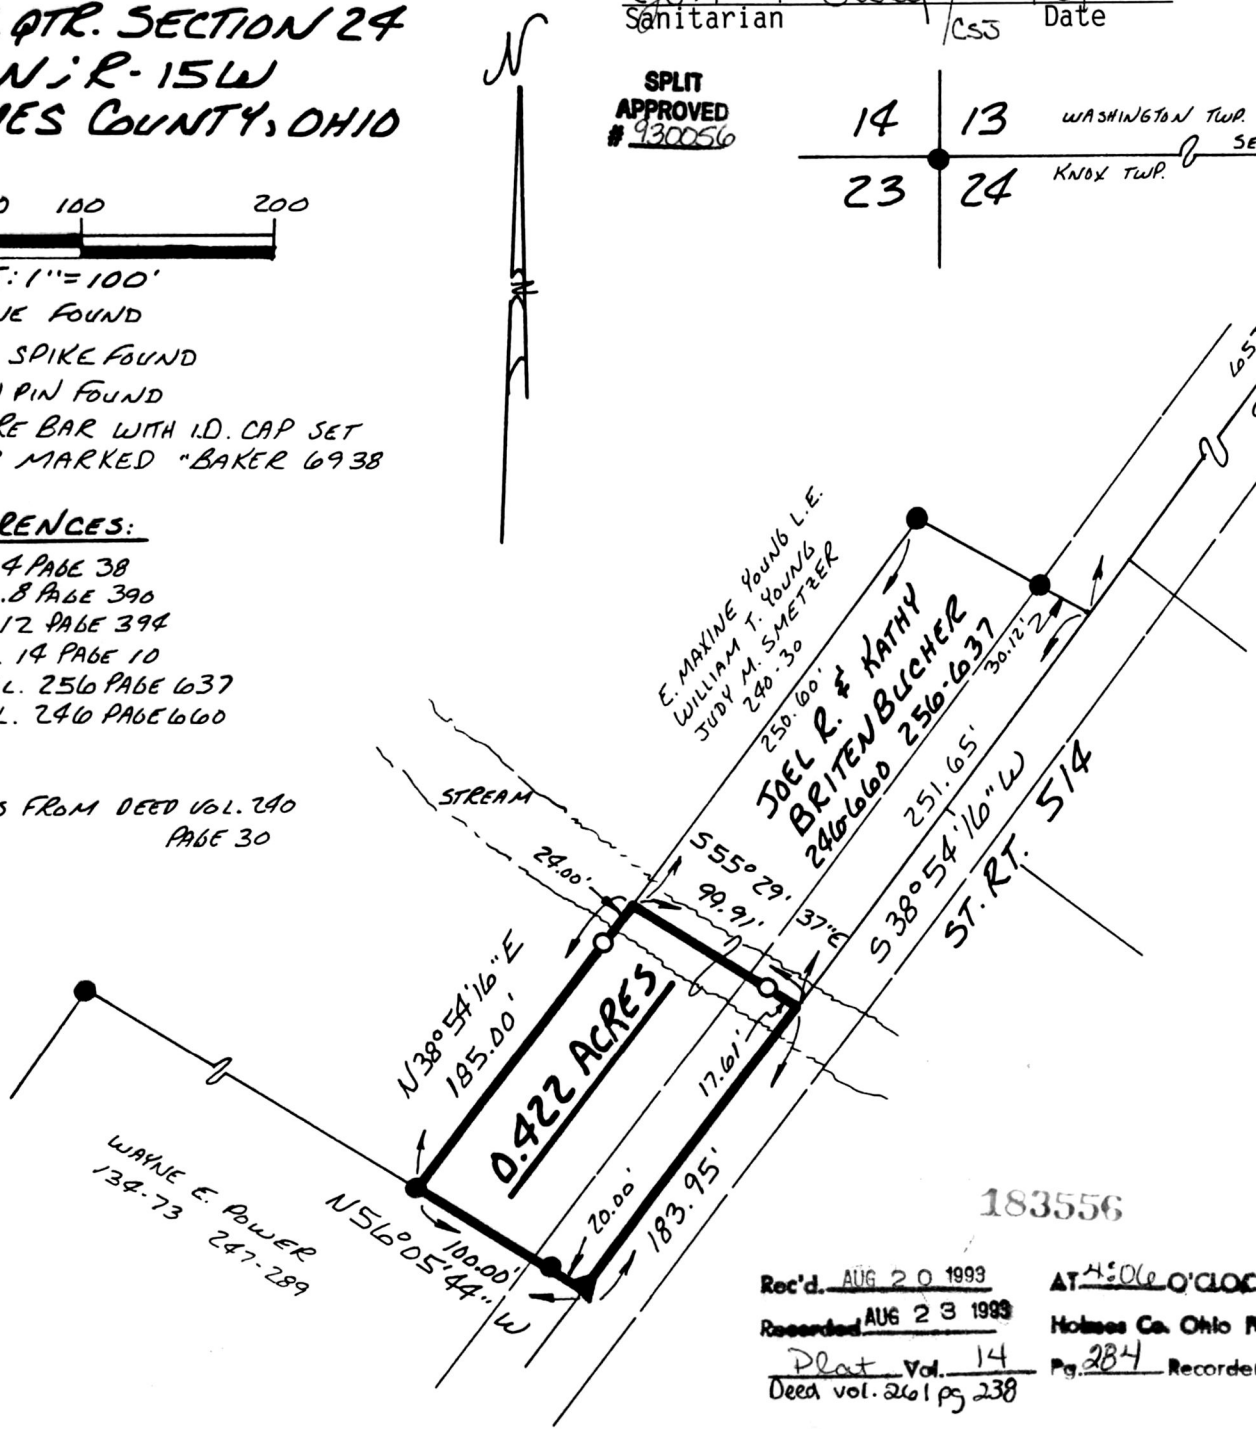 QTR. SECTION 24
N; R-15W
MES COUNTY, OHIO
100 200
T: 1"=100'
NE FOUND
SPIKE FOUND
PIN FOUND
RE BAR WITH I.D. CAP SET
MARKED "BAKER 6938
RENCES:
4 PAGE 38
.8 PAGE 390
12 PAGE 394
. 14 PAGE 10
L. 256 PAGE 637
L. 246 PAGE 660
S FROM DEED VOL. 240
PAGE 30
N
Sanitarian
/CSJ
Date
SPLIT
APPROVED
# 930056
14 13
23 24
WASHINGTON TWP.
SE
KNOX TWP.
E. MAXINE YOUNG L.E.
WILLIAM T. YOUNG
JUDY M. SMETZER
240-30
250.60'
JOEL R. & KATHY
BRITENBUCHER
246-660 256-637
30.12'
251.65'
S 38° 54' 16" W
ST. RT. 514
STREAM
24.00'
S 55° 29' 37" E
99.91'
N 38° 54' 16" E
185.00'
0.422 ACRES
17.61'
20.00'
183.95'
N 56° 05' 44" W
100.00'
WAYNE E. POWER
134-73 247-289
183556
Rec'd. AUG 20 1993 AT 4:06 O'CLOC
Recorded AUG 23 1993 Holmes Co. Ohio
Plat Vol. 14 Pg. 284 Recorde
Deed vol. 261 pg 238